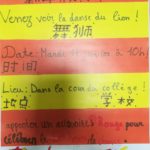 Venez voir la danse du lion !
舞狮
Date: Mardi à 10h!
时间
Lieu: Dans la cour du collège !
地点 学校
apporter un accessoire Rouge pour
célébrer le